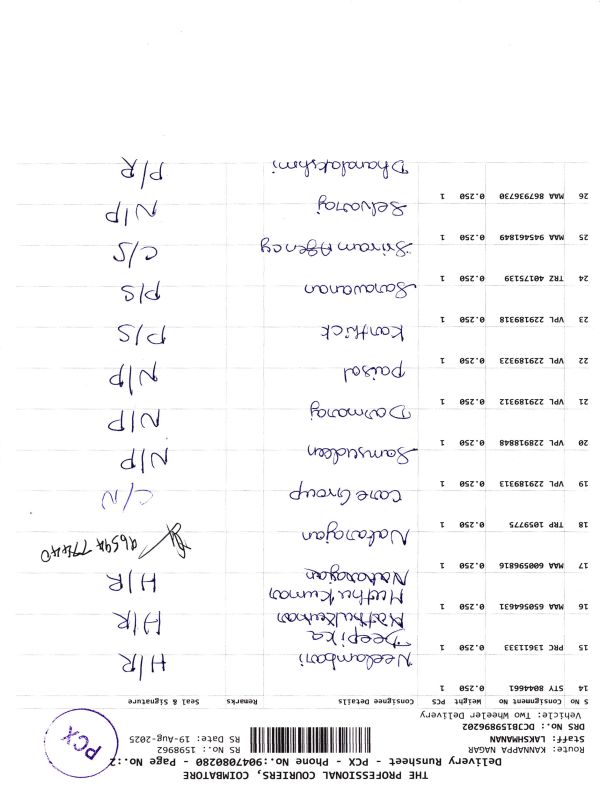 THE PROFESSIONAL COURIERS, COIMBATORE
Delivery Runsheet - PCX - Phone No.:9047080280 - Page No.:2
Route: KANNAPPA NAGAR
Staff: LAKSHMANAN
DRS No.: DCJB159896202
Vehicle: Two Wheeler Delivery
RS No.: 1598962
RS Date: 19-Aug-2025
PCX
S No Consignment No Weight PCS Consignee Details Remarks Seal & Signature
14 STY 8044661 0.250 1
Neelambari H/R
15 PRC 13611333 0.250 1
Deepika
Muthukumar H/R
16 MAA 650564631 0.250 1
Muthukumar
Natarajan H/R
17 MAA 600596816 0.250 1
Natarajan 9659477440
18 TRP 1069775 0.250 1
Care Group C/N
19 VPL 229189313 0.250 1
Samsudeen N/P
20 VPL 228918848 0.250 1
Darmaraj N/P
21 VPL 229189312 0.250 1
Paisal N/P
22 VPL 229189323 0.250 1
Karthick P/S
23 VPL 229189318 0.250 1
Saravanan P/S
24 TRZ 40175139 0.250 1
Sriram Agency C/S
25 MAA 945461849 0.250 1
Selvaraj N/P
26 MAA 867936730 0.250 1
Dhanalakshmi P/R